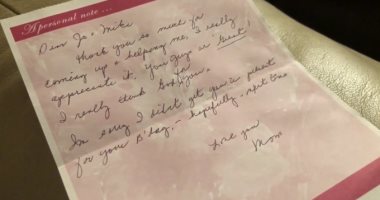 A personal note ...
Dear Jo & Mike
Thank you so much for
coming up & helping me, I really
appreciate it. You guys are Great!
I really thank God for you.
I'm sorry I didn't get you a present
for your B'day, - hopefully, next time
Love you
Mom